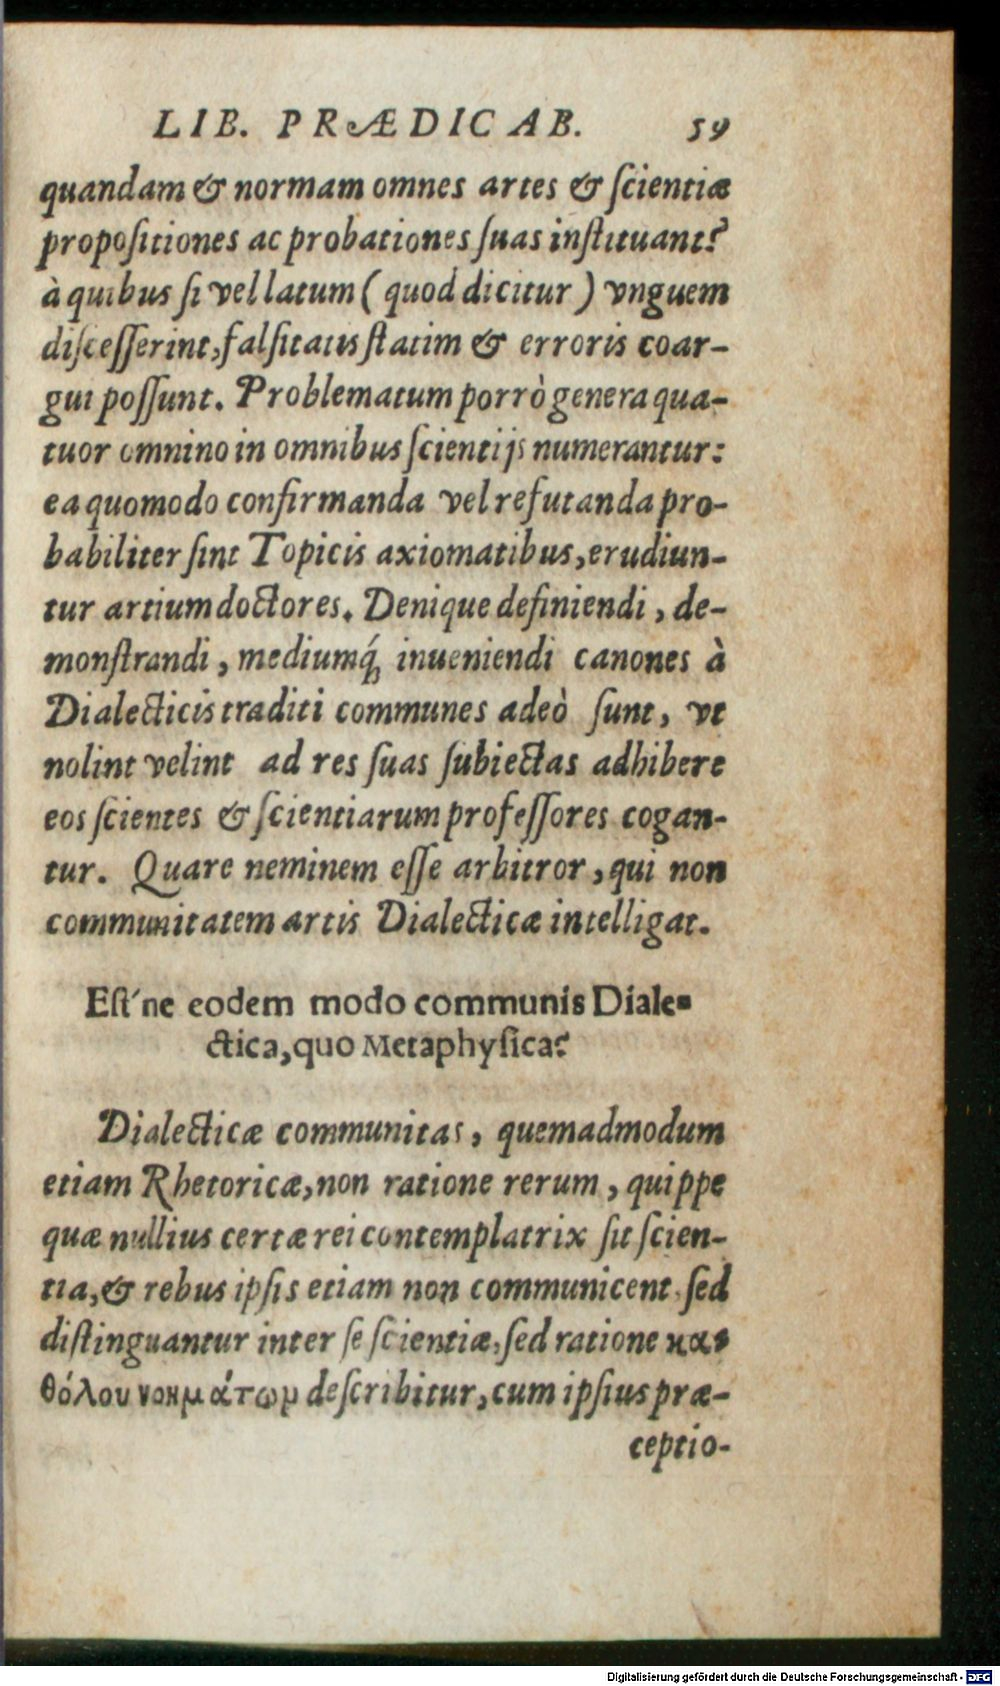 LIB. PRÆDICAB. 59
quandam & normam omnes artes & ſcientiæ
propoſitiones ac probationes ſuas inſtituant?
à quibus ſi vel latum ( quod dicitur ) vnguem
diſceſſerint, falſitatis ſtatim & erroris coar-
gui poſſunt. Problematum porrò genera qua-
tuor omnino in omnibus ſcientijs numerantur:
ea quomodo confirmanda vel refutanda pro-
babiliter ſint Topicis axiomatibus, erudiun-
tur artium doctores. Denique definiendi, de-
monſtrandi, mediumq́; inueniendi canones à
Dialecticis traditi communes adeò ſunt, vt
nolint velint ad res ſuas ſubiectas adhibere
eos ſcientes & ſcientiarum profeſſores cogan-
tur. Quare neminem eſſe arbitror, qui non
communitatem artis Dialecticæ intelligat.
Eſt'ne eodem modo communis Diale-
ctica, quo Metaphyſica?
Dialecticæ communitas, quemadmodum
etiam Rhetoricæ, non ratione rerum, quippe
quæ nullius certæ rei contemplatrix ſit ſcien-
tia, & rebus ipſis etiam non communicent ſed
diſtinguantur inter ſe ſcientiæ, ſed ratione κα-
θόλου νοημάτωμ deſcribitur, cum ipſius præ-
ceptio-
Digitalisierung gefördert durch die Deutsche Forschungsgemeinschaft - DFG